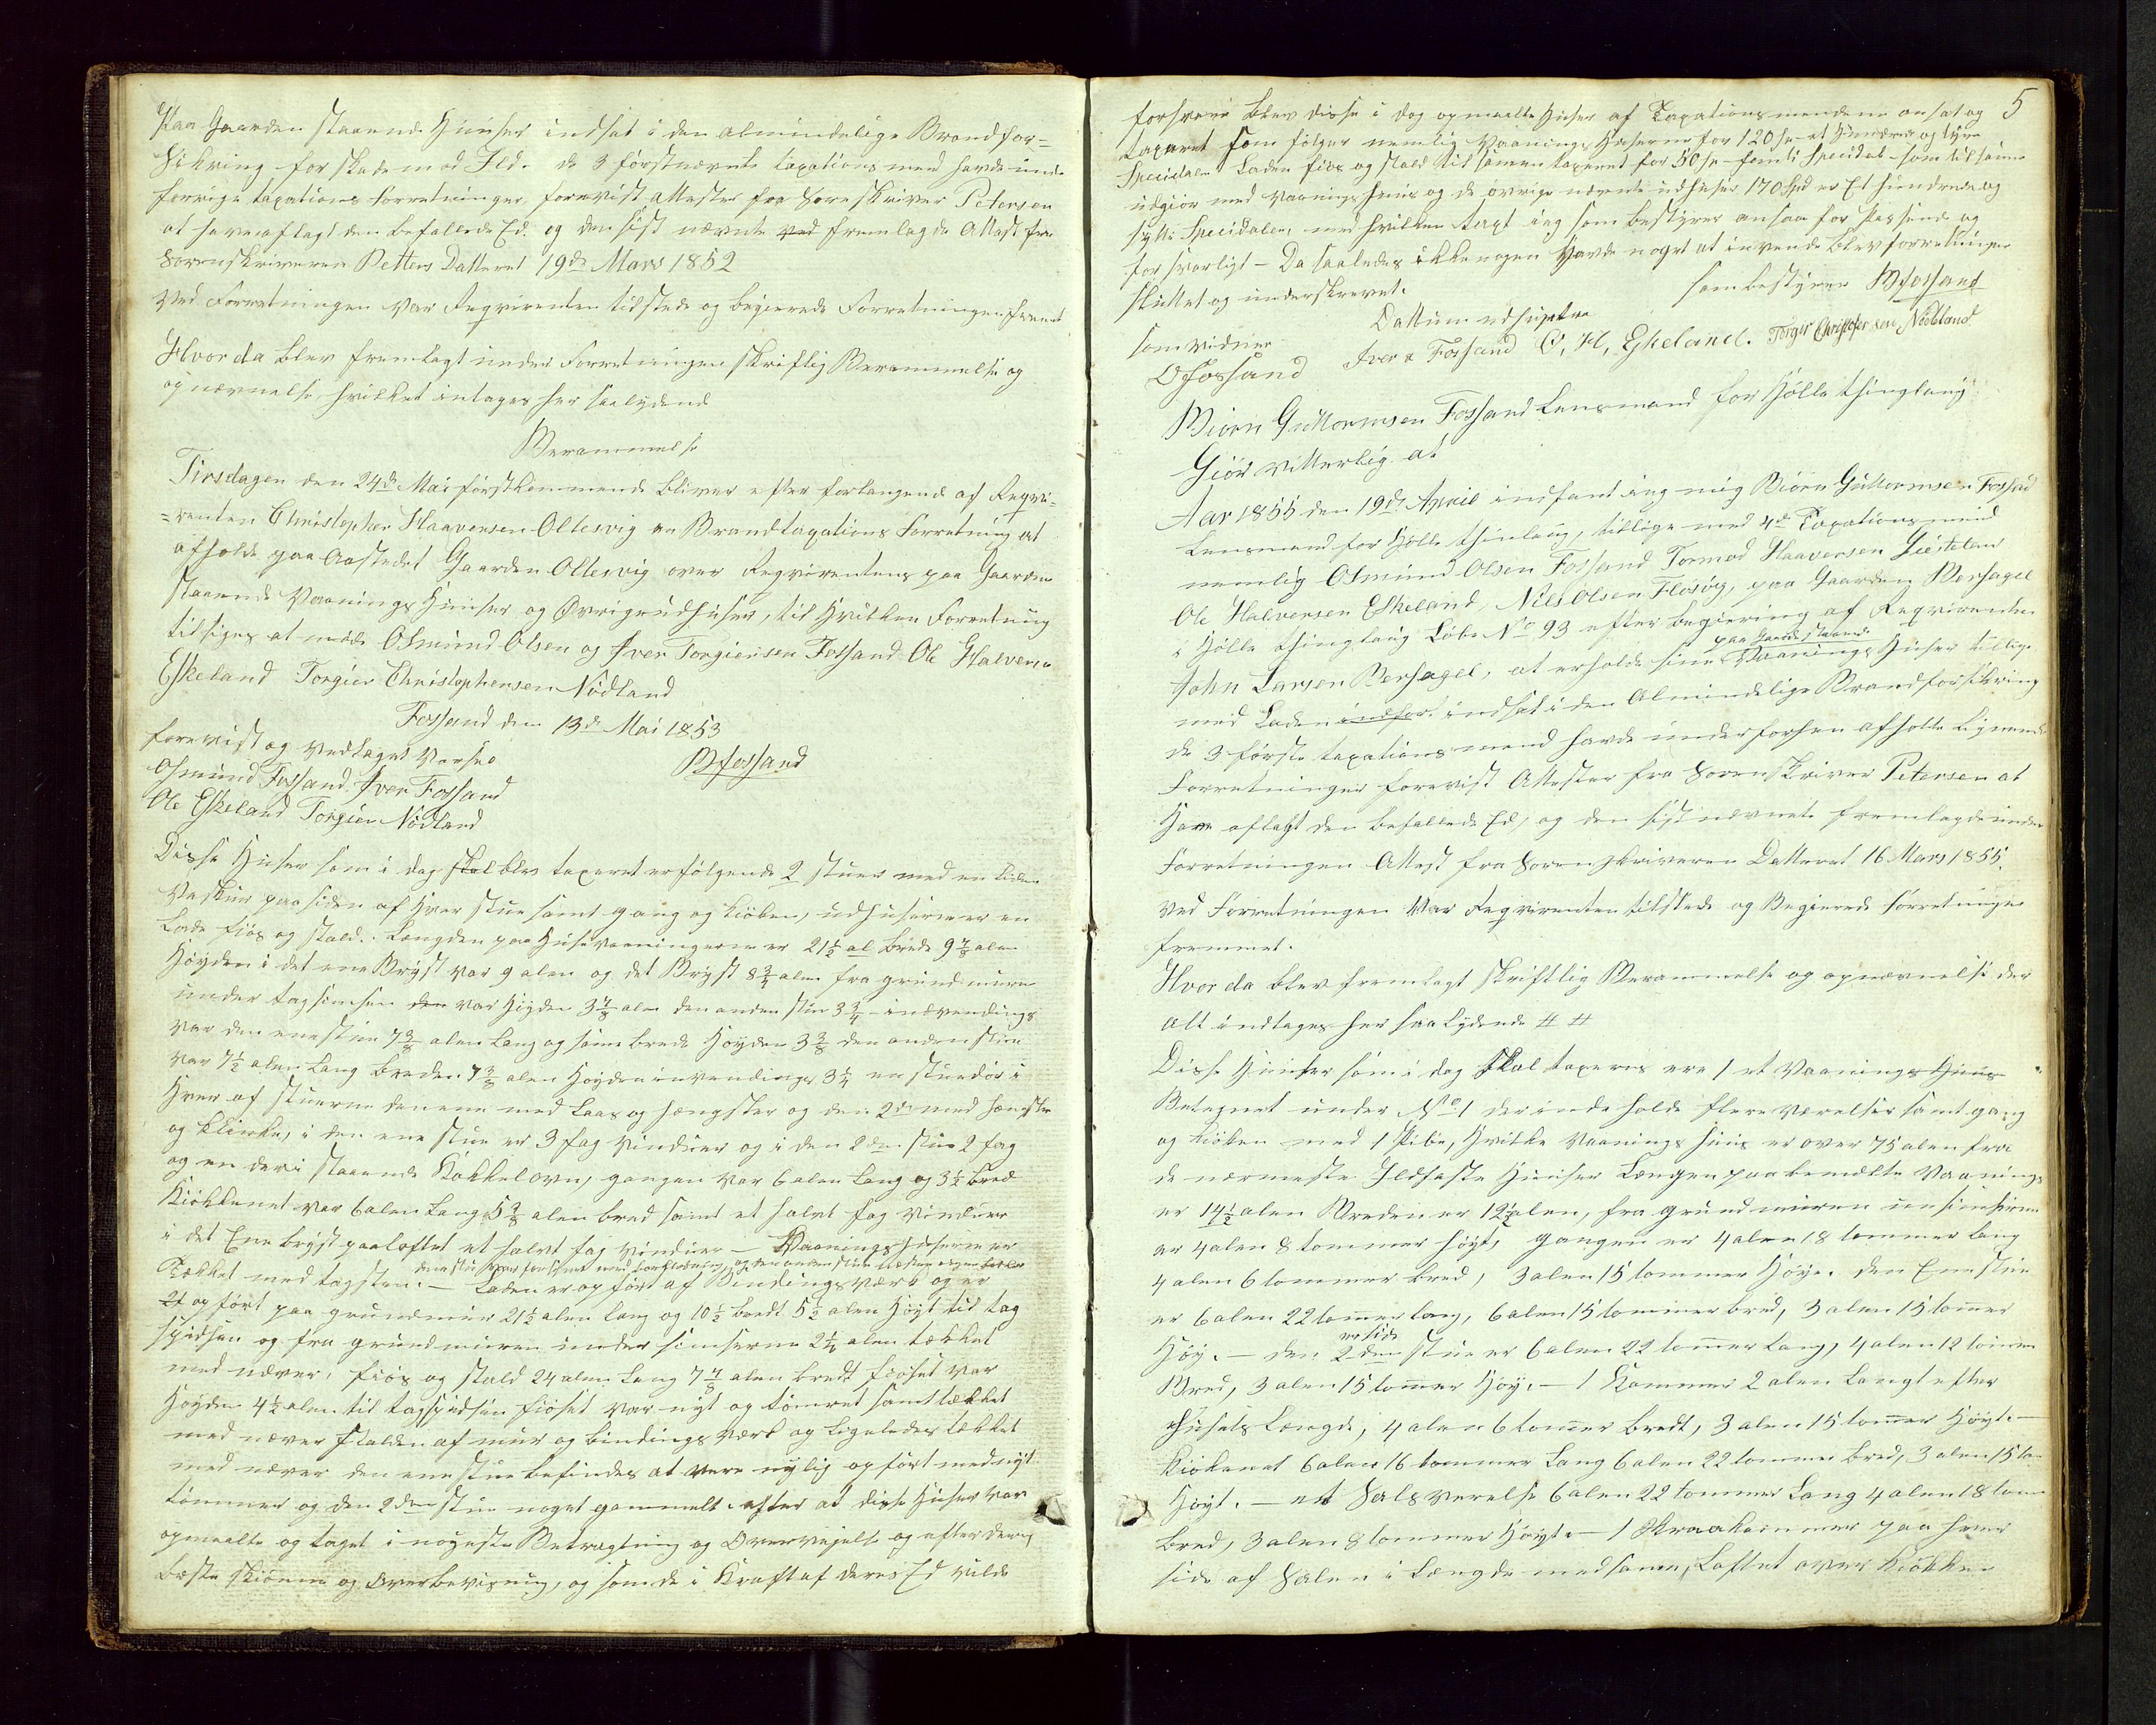 Paa Gaarden staaende Huuser indsat i den almindelige Brandfor=
sikring for skade mod Ild. de 3 førstnævnte taxations mend havde unde
forrige taxations forretninger forevist attester fra Sorenskriver Petersen
at have aflagt den befallede Ed. og den sist nævnte ved fremlagde Attest fra
Sorenskriveren Petters Datteret 19de Mars 1852
Ved Forretningen var Reqvirenten tilstede og begierede Forretningen fremmet
Hvor da blev fremlagt under Forretningen skriftlig Berammelse og
opnævnelse hvilket intages her saalydende
Berammelse
Tirsdagen den 24de Mai førstkommende bliver efter forlangende af Reqvi=
=renten Christopher Haavorsen Oltesvig en Brandtaxations Forretning at
afholde paa Aastedet Gaarden Oltesvig over Reqvirentens paa Gaarden
staaende Vaanings Huuser og Øvrige udhuser, til Hvilken Forretning
tilsiges at møde Osmund Olsen og Iver Torgiersen Fossand Ole Halvorsen
Eskeland Torgier Christophersen Nødland
Fossand den 13de Mai 1853
forevist og vedtaget Varsel BFossand
Osmund Fossand. Iver Fossand
Ole Eskeland Torgier Nødland
Disse Huser som i dag skal blev taxeret er følgende 2 stuer med en liden
Vaskuur paa siden af Hver stue samt gang og kiøken, udhuserne er en
Lade fiøs og stald. Længden paa Huusevaaningerne er 21½ al brede 9⅞ alen
Høyden i det ene Bryst var 9 alen og det Bryst 8¾ alen fra grundmuren
under tagsimsen den var Høyden 3⅞ alen den anden stue 3¾ - indvendings
var den ene stue 7⅜ alen lang og samme brede Høyden 3⅜ den anden stue
var 7½ alen lang breden 7⅜ alen Høyden invendings 3¼ en stuedør i
Hver af stuerne den ene med laas og hængster og den 2den med hængster
og klinke, i den ene stue er 3 fag vinduer og i den 2den stue 2 fag
og en deri staaende Kakkelovn, gangen var 6 alen lang og 3½ bred
Kiøkkenet var 6 alen lang 5⅜ alen bred samt et halvt fag vinduer
i det Ene bryst paa loftet et halvt fag vinduer — Vaanings huserne er
Tækket med tagsten. — Laden er opført af Bindingsværk og er
21 opført paa grundmuur 21½ alen lang og 10½ bredt 5½ alen Høyt til tag
spidsen og fra grundmuren under simserne 2¼ alen tækket
med næver, fiøs og stald 24 alen lang 7⅞ alen bredt fiøset var
Høyden 4½ alen til tagspidsen fiøset var nyt og tømret samt tækket
med næver stalden af muur og bindings værk og ligeledes tækket
med næver den ene stue befindes at være nylig opført med nyt
tømmer og den 2den stue noget gammelt. efter at disse Huser var
opmaalte og taget i nøyeste Betragtning og Overvejelse og efter deres
beste skiønn og Overbevisning, og som de i Kraft af deres Ed vilde
5
forsvare blev disse i dag opmaalte Huser af Taxationsmendene ansat og
taxeret som følger nemlig Vaanings Huserne for 120 Sp et Hundrede og tyve
Specidaler Laden fiøs og stald til sammen taxeret for 50 Sp femti Specidal som tilsamme
udgiør med Vaanings Huus og de øvrige nævnte udhuser 170 Spd er Et hundrede og
sytti Specidaler, med hvilken taxt ieg som bestyrer ansaa for passende og
forsvarligt — Da saaledes ikke nogen Havde noget at invende blev forretningen
sluttet og underskrevet.
som bestyrer BFossand
Dattum udsupra
som vidner
OFossand Iver Fossand O, H, Eskeland. Torgier Christofersen Nødland
Biørn Guttormsen Fossand Lensmand for Hølle thinglaug
Giør vitterlig at
Aar 1855 den 19de April indfant ieg mig Biørn Guttormsen Fossand
Lensmand for Hølle thinlaug, tillige med 4de Taxationsmend
nemlig Osmund Olsen Fossand Tormod Haavorsen Giestelan
Ole Halvorsen Eskeland, Nils Olsen Fløsøg, paa Gaarden Bersagel
i Hølle thinglaug Løbe No 93 efter begiering af Reqvirenten
John Larsen Bersagel, at erholde sine paa Gaarde staaende Vaanings Huser tillige
med Laden indfor indsat i den Almindelige Brandforsikring
de 3 første taxations mend havde under forhen afholte lignende
Forretninger forevist Attester fra Sorenskriver Petersen at
Have aflagt den befallede Ed, og den sist nævnete fremlagde under
Forretningen Attest fra Sorenskriveren Datteret 16 Mars 1855.
Ved Forretningen Var Reqvirenten tilstede og Begierede forretningen
fremmet.
Hvor da blev fremlagt skriftlig Berammelse og opnævnelse der
Alt indtages her saalydende # #
Disse Huuser som i dag skal taxeres ere 1 et Vaanings Huus
Betegnet under No 1 der inde holde flere værelser samt gang
og kiøken med 1 Pibe, Hvilke Vaanings huus er over 75 alen fra
de nærmeste Ildfaste Huuser Længen paa bemælte Vaanings
er 14½ alen Breden er 12½ alen, fra grundmuren un simserne
er 4 alen 8 tommer høyt, gangen er 4 alen 18 tommer lang
4 alen 6 tommer bred, 3 alen 15 tommer Høye. den Ene stue
er 6 alen 22 tommer lang, 6 alen 15 tommer bred, 3 alen 15 tommer
Høy. — den 2den stue er 6 alen 22 tommer lang, 4 alen 12 tommer
Bred, 3 alen 15 tommer Høy. — 1 Kammer 2 alen langt efter
Husets Længde, 4 alen 6 tommer bredt, 3 alen 15 tommer Høyt. —
Kiøkenet 6 alen 16 tommer lang 6 alen 22 tommer bred, 3 alen 15 to
Høyt. — et Sals værelse 6 alen 22 tommer lang 4 alen 18 tom
bred, 3 alen 8 tommer Høyt. — 1 Skraakammer paa hver
side af Salen i Længde med samme, Loftet over Kiøkken